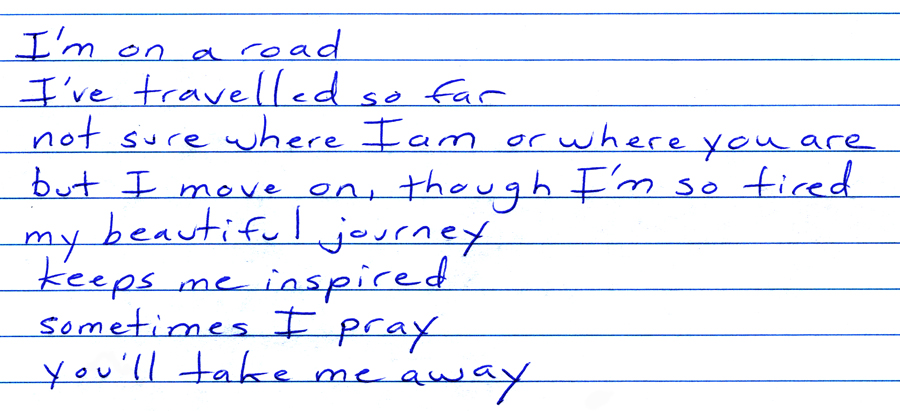 I'm on a road
I've travelled so far
not sure where I am or where you are
but I move on, though I'm so tired
my beautiful journey
keeps me inspired
sometimes I pray
you'll take me away